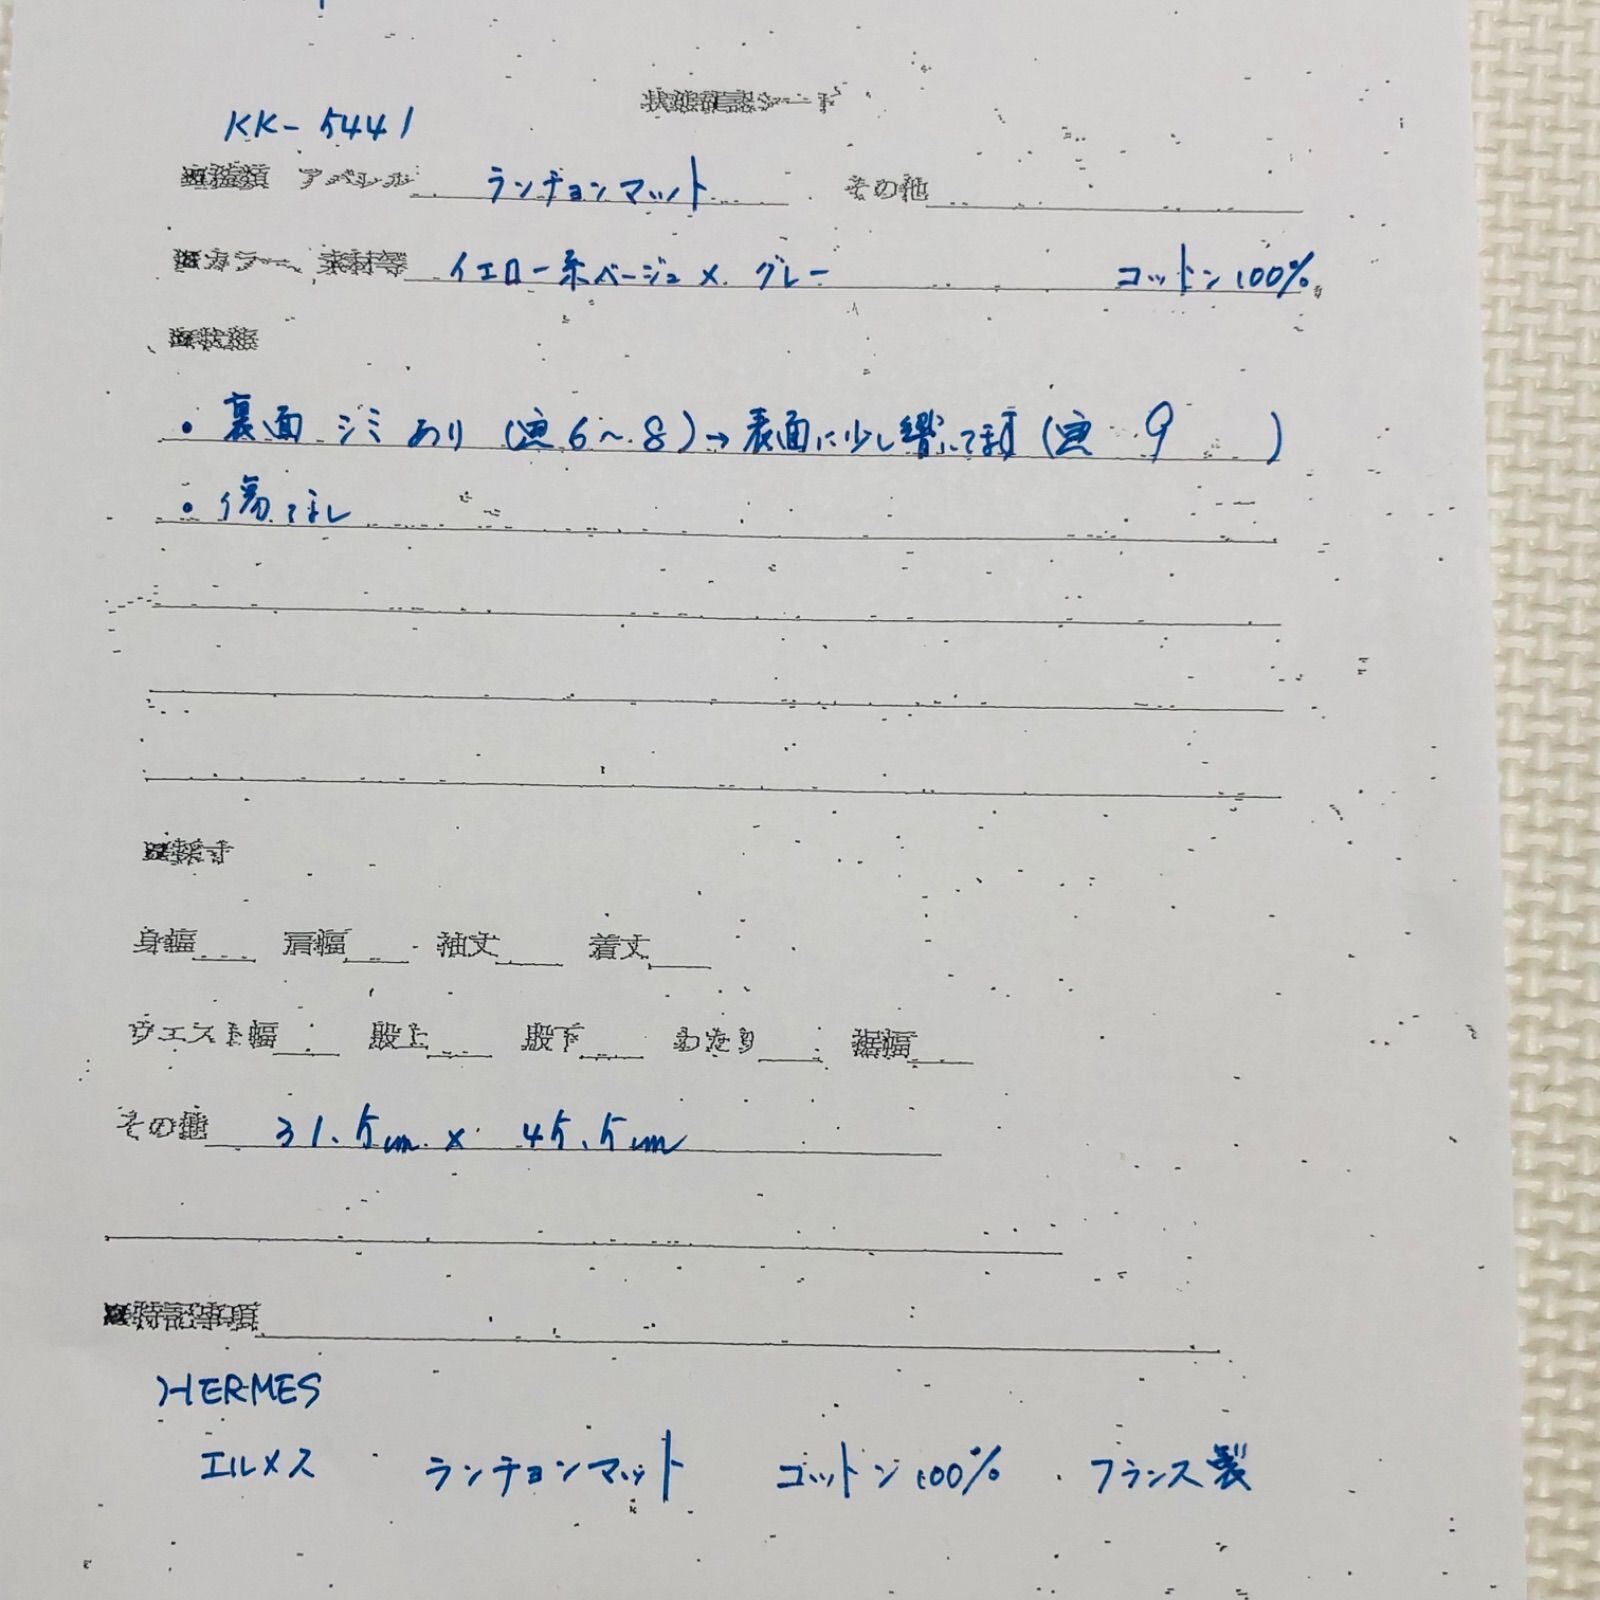 状態確認シート
KK-5441
■種類 アパレル ランチョンマット その他
■カラー、素材等 イエロー系ベージュ × グレー コットン100%
■状態
・裏面 シミ あり (画6〜8)→表面に少し響いてます(画 9 )
・傷なし
■採寸
身幅 肩幅 袖丈 着丈
ウエスト幅 股上 股下 わたり 裾幅
その他 31.5cm × 45.5cm
■特記事項
HERMES
エルメス ランチョンマット コットン100% フランス製